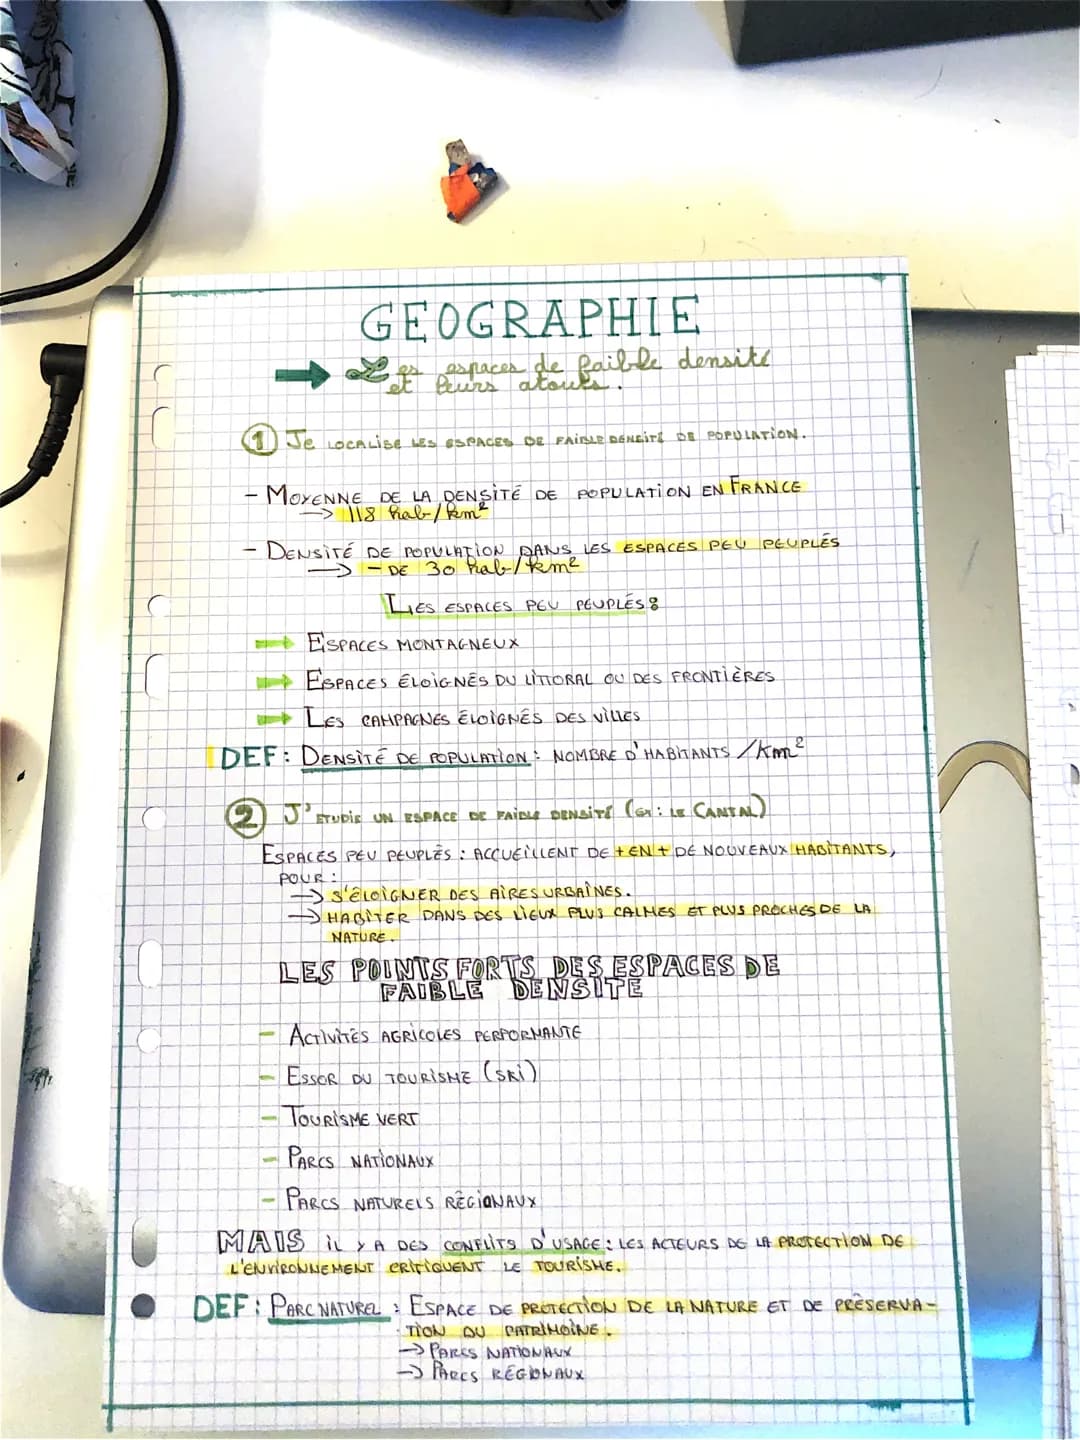 GEOGRAPHIE
Les espaces de faible densité
et leurs atouts.
① Je LOCALISE LES ESPACES DE FAIBLE DENSITÉ DE POPULATION.
- MOYENNE DE LA DENSITÉ DE POPULATION EN FRANCE
→ 118 hab/km²
- DENSITÉ DE POPULATION DANS LES ESPACES PEU PEUPLÉS
→ - DE 30 hab/km²
LES ESPACES PEU PEUPLÉS :
ESPACES MONTAGNEUX
ESPACES ÉLOIGNÉS DU LITTORAL OU DES FRONTIÈRES
LES CAMPAGNES ÉLOIGNÉS DES VILLES
DEF : DENSITÉ DE POPULATION : NOMBRE D'HABITANTS /Km²
② J'ÉTUDIE UN ESPACE DE FAIBLE DENSITÉ (ex : LE CANTAL)
ESPACES PEU PEUPLÉS : ACCUEILLENT DE + EN + DE NOUVEAUX HABITANTS,
POUR :
→ S'ÉLOIGNER DES AIRES URBAINES.
→ HABITER DANS DES LIEUX PLUS CALMES ET PLUS PROCHES DE LA
NATURE.
LES POINTS FORTS DES ESPACES DE
FAIBLE DENSITE
- ACTIVITÉS AGRICOLES PERFORMANTE
- ESSOR DU TOURISME (SKI)
- TOURISME VERT
- PARCS NATIONAUX
- PARCS NATURELS RÉGIONAUX
MAIS IL Y A DES CONFLITS D'USAGE : LES ACTEURS DE LA PROTECTION DE
L'ENVIRONNEMENT CRITIQUENT LE TOURISME.
DEF : PARC NATUREL : ESPACE DE PROTECTION DE LA NATURE ET DE PRÉSERVA-
TION DU PATRIMOINE.
→ PARCS NATIONAUX
→ PARCS RÉGIONAUX